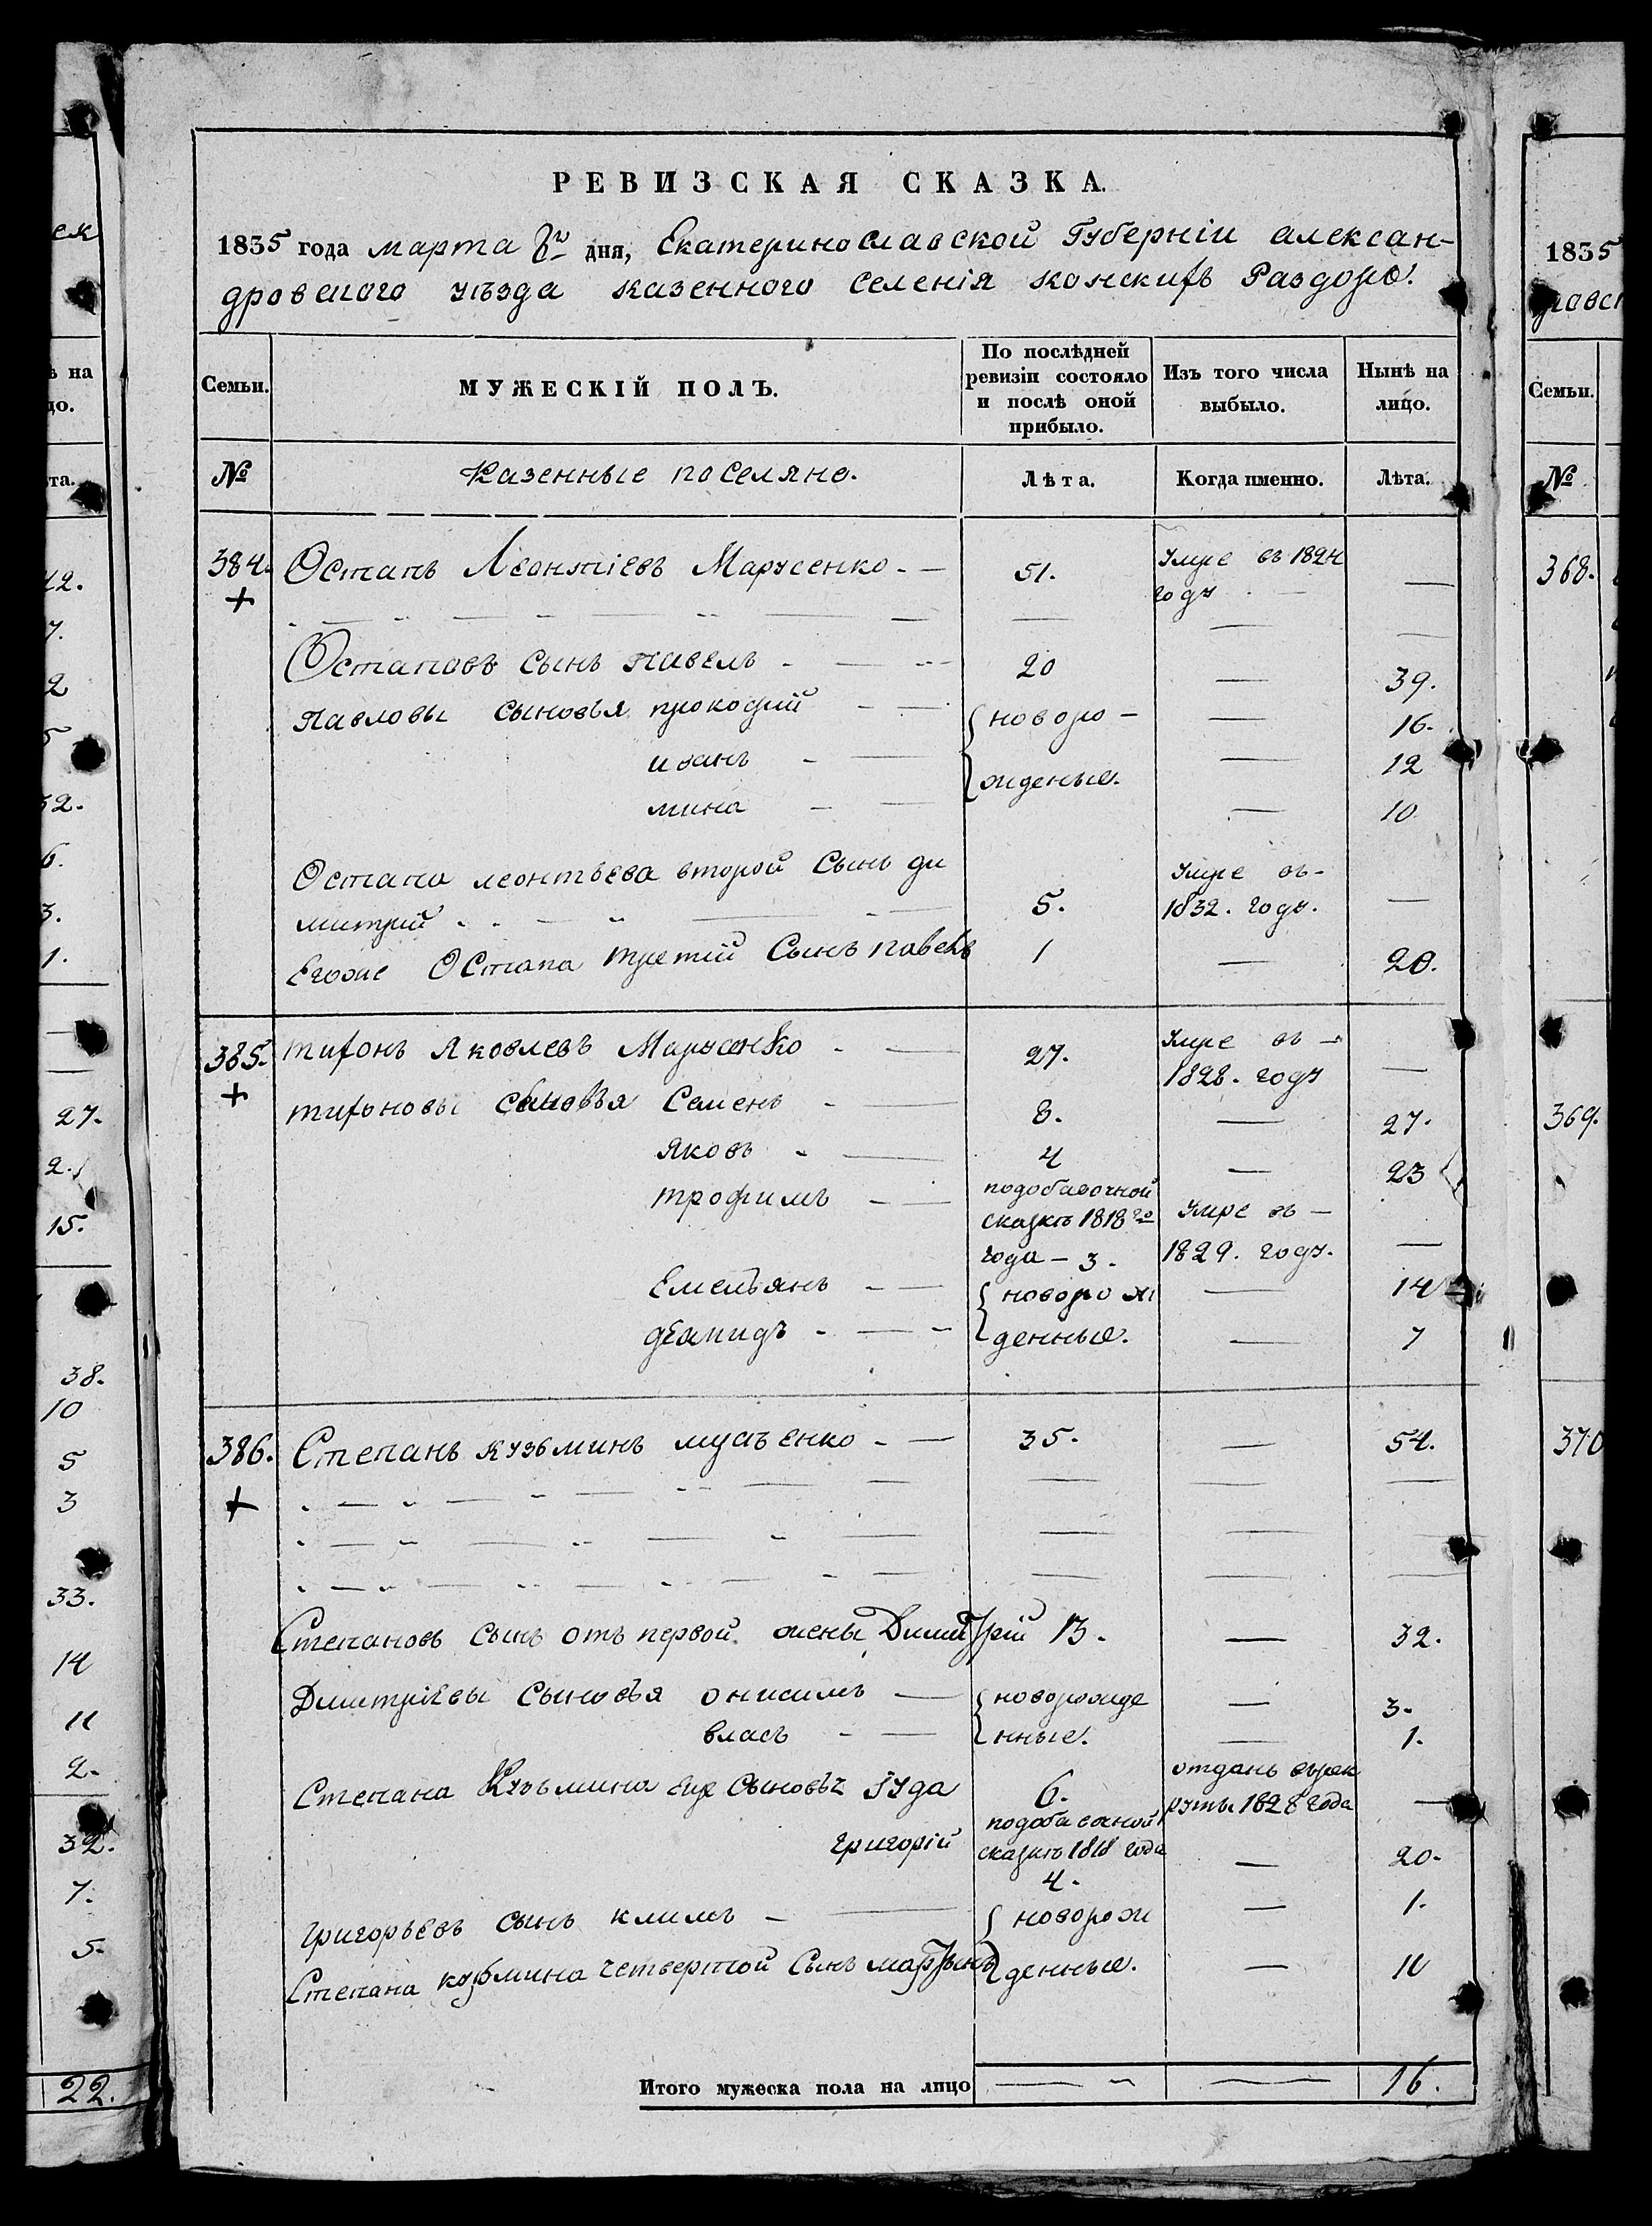 РЕВИЗСКАЯ СКАЗКА.
1835 года марта дня, Екатеринославской Губерніи алексан-
дровского уѣзда казенного селенія конскихъ Раздоро.
Семьи. МУЖЕСКІЙ ПОЛЪ. По послѣдней ревизіи состояло и послѣ оной прибыло. Изъ того числа выбыло. Нынѣ на лицо.
№ Казенные поселяне. Лѣта. Когда именно. Лѣта.
384. Остапъ Леонтіевъ Марусенко - — 51. Умре въ 1824 году —
+
Остаповъ сынъ павелъ - — 20 — 39.
Павловы сыновья прокофий - — { новоро- — 16.
иванъ - — — 12
мина - — { жденые. — 10
Остапа леонтьева второй Сынъ ди
митрий - — 5. Умре въ- 1832. году. —
Егоже Остапа третій Сынъ павелъ 1 — 20.
385. тихонъ Яковлевъ Марусенко - — 27. Умре въ - 1828. году —
+
тихоновы сыновья Семенъ - — 8. — 27.
яковъ - — 4 — 23
трофимъ - — подобавочной сказкѣ 1818го года - 3. Умре въ - 1829. году. —
Емельянъ - — { новорож — 14
демидъ - — - { денные. — 7
386. Степанъ кузьминъ мусъенко - — 35. — 54.
+
Степановъ сынъ отъ первой жены Димитрій 13. — 32.
Дмитріевы Сыновья онисимъ — { новорожде — 3.
власъ - — { нные. — 1.
Степана Кузьмина еще Сыновья Iуда 6. отданъ врек руты 1828 года —
григорій подобавочной сказкѣ 1818 года 4. — 20.
григорьевъ сынъ климъ - — { новорож — 1.
Степана кузьмина четвертой Сынъ мартынъ { денные. — 11
Итого мужеска пола на лицо — — 16.
ек
ѣ на
цо.
та.
42.
7.
2
5
32.
6.
3.
1.
27.
2.
15.
38.
10
5
3
33.
14
11
2.
32.
7.
5.
22.
1835
Семьи.
№
368.
369.
370